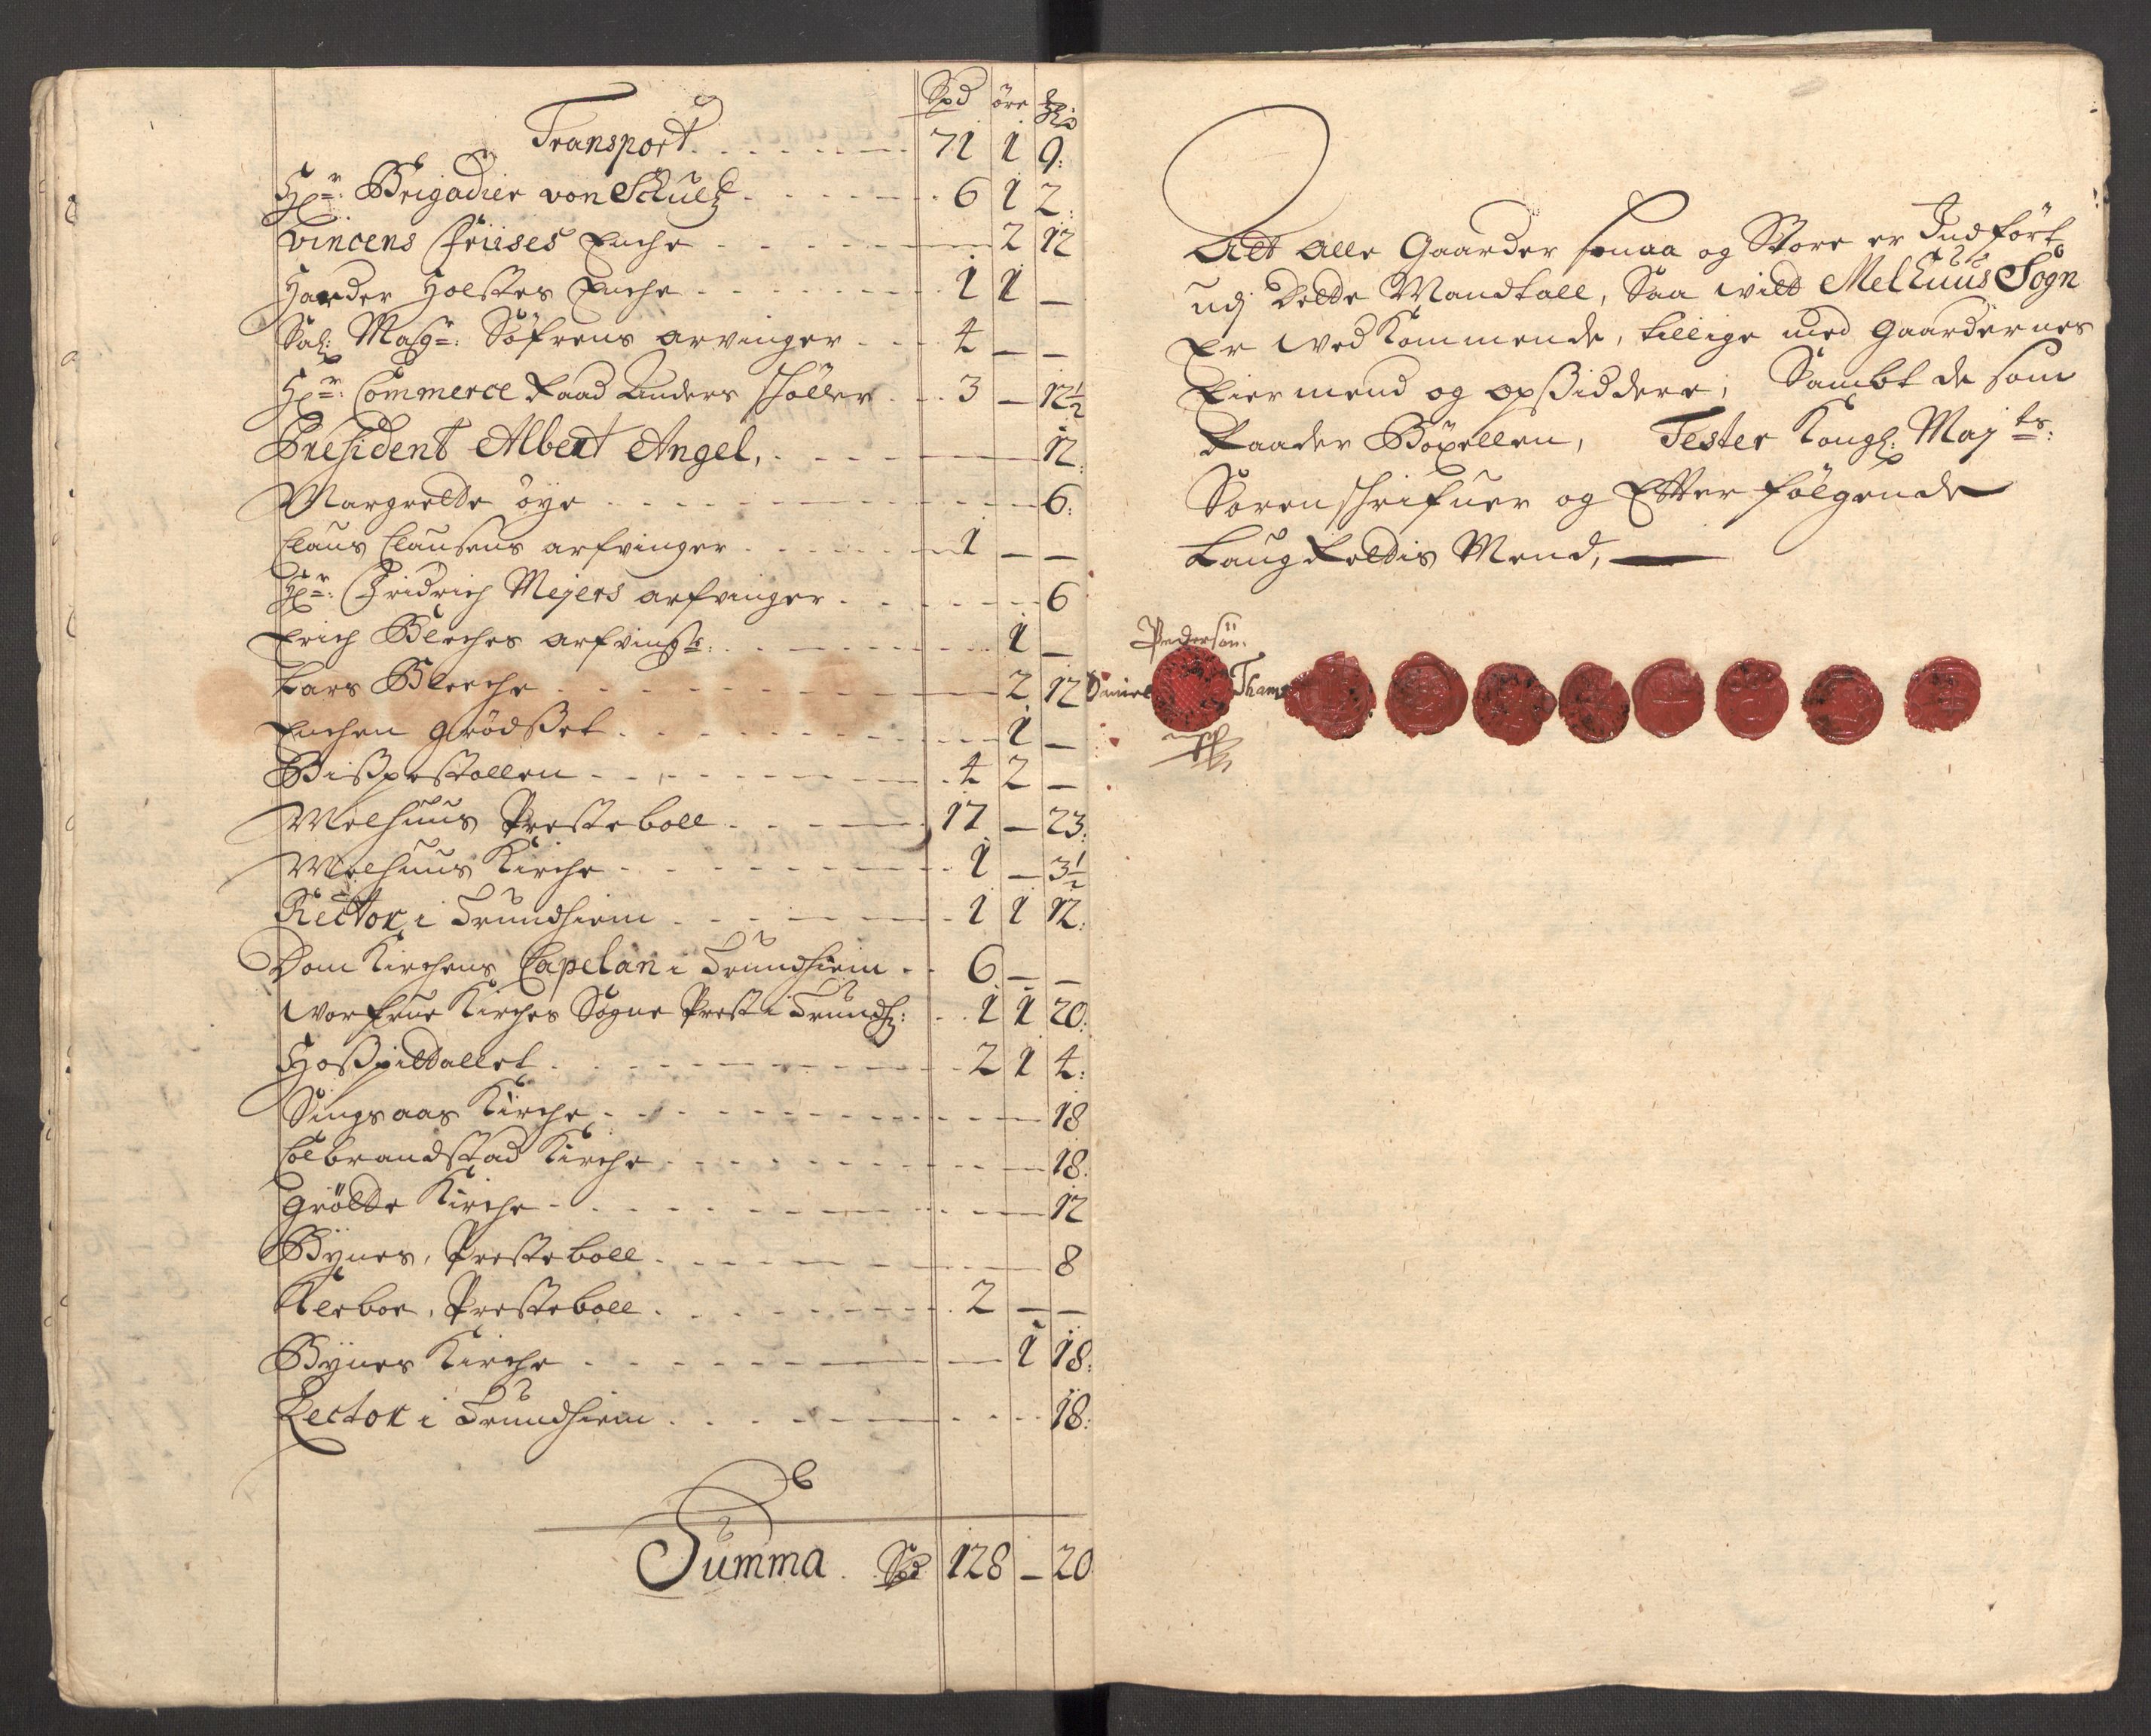 Spd öre
Transport 71 1 9:
Hr: Brigadier von Schultz 6 1 2:
Vincens Friises Enche 2 12
Harder Holstes Enche 1 1 —
Sal: Magr: Söfrens arvinger 4 — —
Hr: Commerce Raad Anders Schöller 3 — 12½
President Albert Angel, 12:
Margrette öye 6:
Claus Clausens arfvinger 1 — —
Hr: Fridrich Mejers arfvinger 6
Erich Bleches arfving: 1 —
Lars Bleche 2 12
Enchen Grödßet 1 —
Bißpestollen 4 2 —
Melhuus Presteboll 17 — 23:
Melhuus Kirche 1 — 3½
Rector i Trundhiem 1 1 12:
Dom Kirchens Capelan i Trundhiem 6 — —
Vor frue Kirches Sogne Prest i Trundh: 1 1 20:
Hoßpittallet 2 1 4:
Singsaas Kirche 18
Colbrandstad Kirche 18:
Grötte Kirche 12
Bynes, Presteboll 8
Kleboe, Presteboll 2 — —
Bynes Kirche 1 18:
Lector i Trundhiem 18:
Summa Spd 128 — 20
Att Alle Gaarder smaa og Store er Indfört
udj Dette Mandtall, Saa witt Melhuus Sogn
Er wed Kommende, tillige med Gaardernes
Eiermend og opßiddere; Sambt de som
Raader Böxellen, Tester Kongl: Majts:
Sorenschrifuer og Efterfölgende
Laug Rettis Mend,
Pedersön:
Daniel Thams